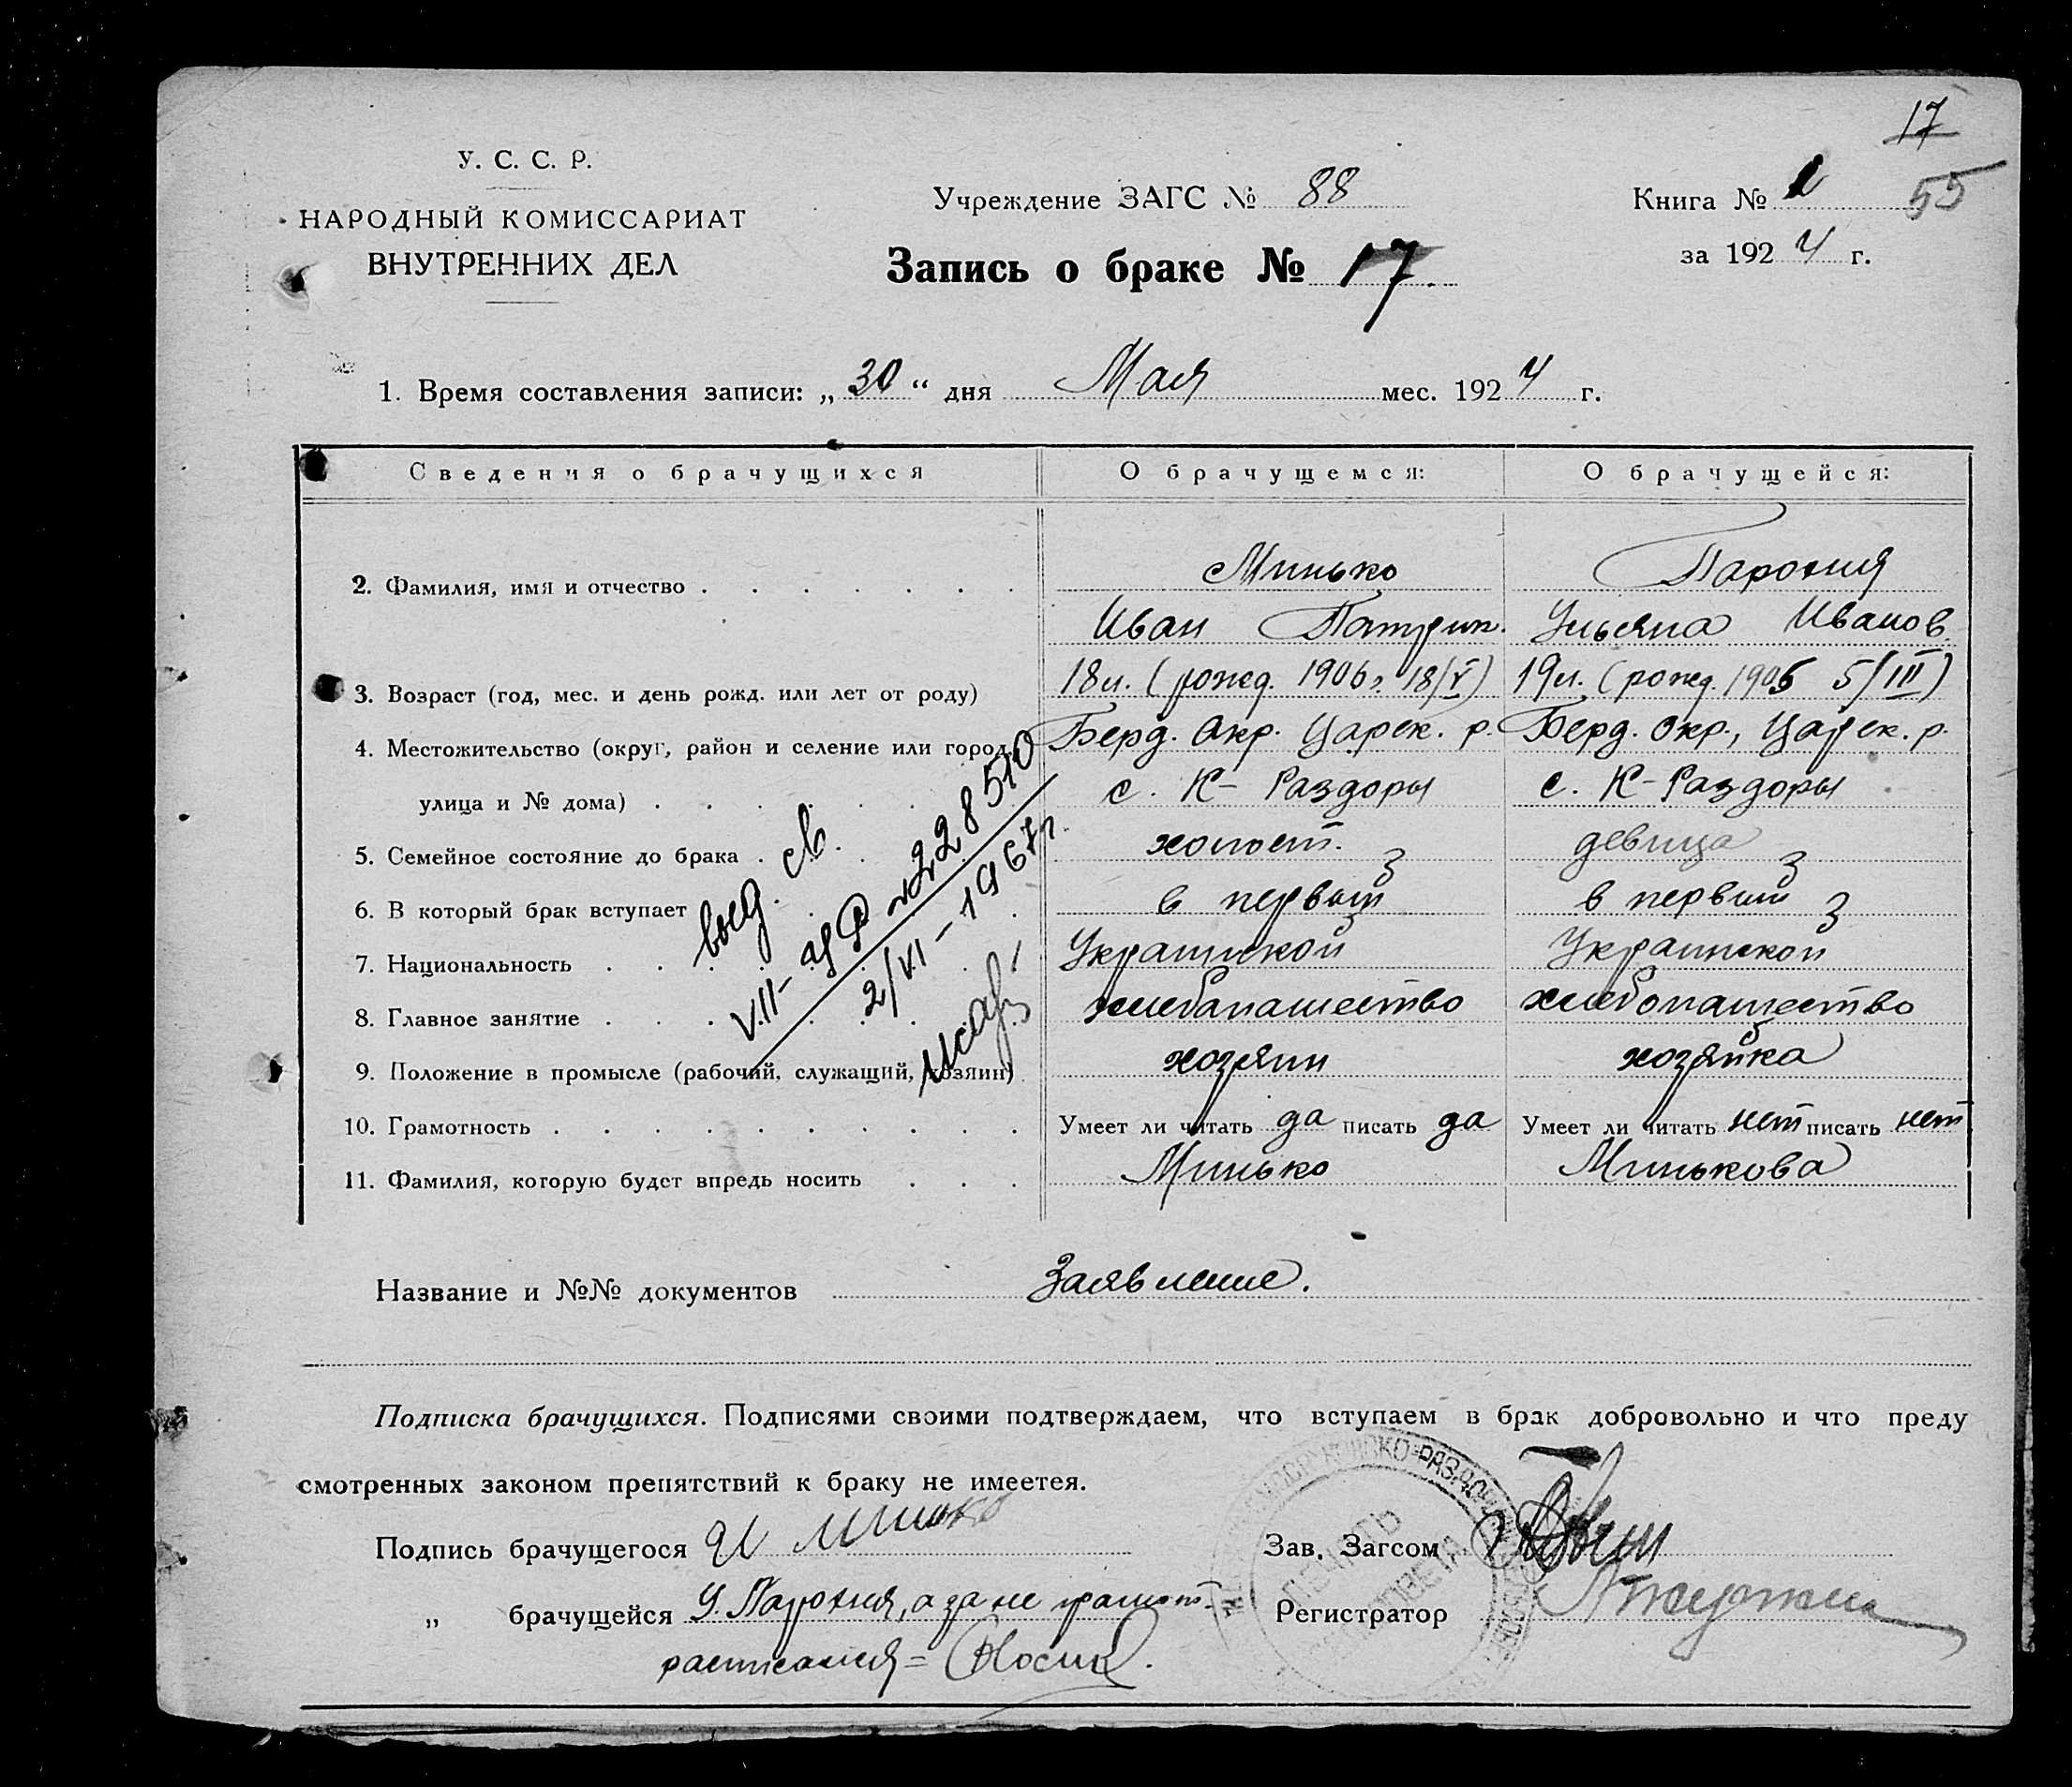 17
55
У. С. С. Р.
НАРОДНЫЙ КОМИССАРИАТ
ВНУТРЕННИХ ДЕЛ
Учреждение ЗАГС № 88
Книга № 1
Запись о браке № 17
за 1924 г.
1. Время составления записи: „30“ дня Мая мес. 1924 г.
Сведения о брачущихся О брачущемся: О брачущейся:
2. Фамилия, имя и отчество Минько Парохня
Иван Патрик. Ульяна Иванов.
3. Возраст (год, мес. и день рожд. или лет от роду) 18 л. (рожд. 1906 г. 18/V) 19 л. (рожд. 1905 5/III)
4. Местожительство (округ, район и селение или город, Берд. Окр. Царек. р. Берд. Окр., Царек. р.
улица и № дома) с. К-Раздоры с. К-Раздоры
5. Семейное состояние до брака холост. девица
6. В который брак вступает в первый в первый
7. Национальность Украинской Украинской
8. Главное занятие хлебапашество хлебопашество
9. Положение в промысле (рабочий, служащий, хозяин) хозяин хозяйка
10. Грамотность Умеет ли читать да писать да Умеет ли читать нет писать нет
11. Фамилия, которую будет впредь носить Минько Минькова
выд. св.
VII-ЯР № 228510
2/VI-1967г.
Название и №№ документов Заявление.
Подписка брачущихся. Подписями своими подтверждаем, что вступаем в брак добровольно и что преду
смотренных законом препятствий к браку не имеетея.
Подпись брачущегося И Минько
Зав. Загсом
„ брачущейся У. Парохня, а за не грамот.
Регистратор
расписался = Носик.
ПЕЧАТЬ